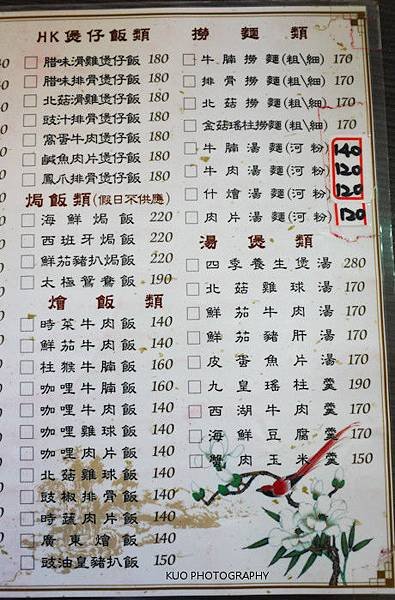 HK煲仔飯類
腊味滑雞煲仔飯 180
腊味排骨煲仔飯 180
北菇滑雞煲仔飯 180
豉汁排骨煲仔飯 180
窩蛋牛肉煲仔飯 180
鹹魚肉片煲仔飯 180
鳳爪排骨煲仔飯 180
焗飯類(假日不供應)
海鮮焗飯 220
西班牙焗飯 220
鮮茄豬扒焗飯 220
太極鴛鴦飯 190
燴飯類
時菜牛肉飯 140
鮮茄牛肉飯 140
柱猴牛腩飯 160
咖哩牛腩飯 160
咖哩牛肉飯 140
咖哩雞球飯 140
咖哩肉片飯 140
北菇雞球飯 140
豉椒排骨飯 140
時蔬肉片飯 140
廣東燴飯 140
豉油皇豬扒飯 150
撈麵類
牛腩撈麵(粗\細) 170
排骨撈麵(粗\細) 170
北菇撈麵(粗\細) 170
金菇瑤柱撈麵(粗\細) 170
牛腩湯麵(河粉)
牛肉湯麵(河粉) 150
什燴湯麵(河粉) 150
肉片湯麵(河粉)
湯煲類
四季養生煲湯 280
北菇雞球湯 170
鮮茄牛肉湯 170
鮮茄豬肝湯 170
皮蛋魚片湯 170
九皇瑤柱羹 190
西湖牛肉羹 170
海鮮豆腐羹 170
蟹肉玉米羹 150
KUO PHOTOGRAPHY